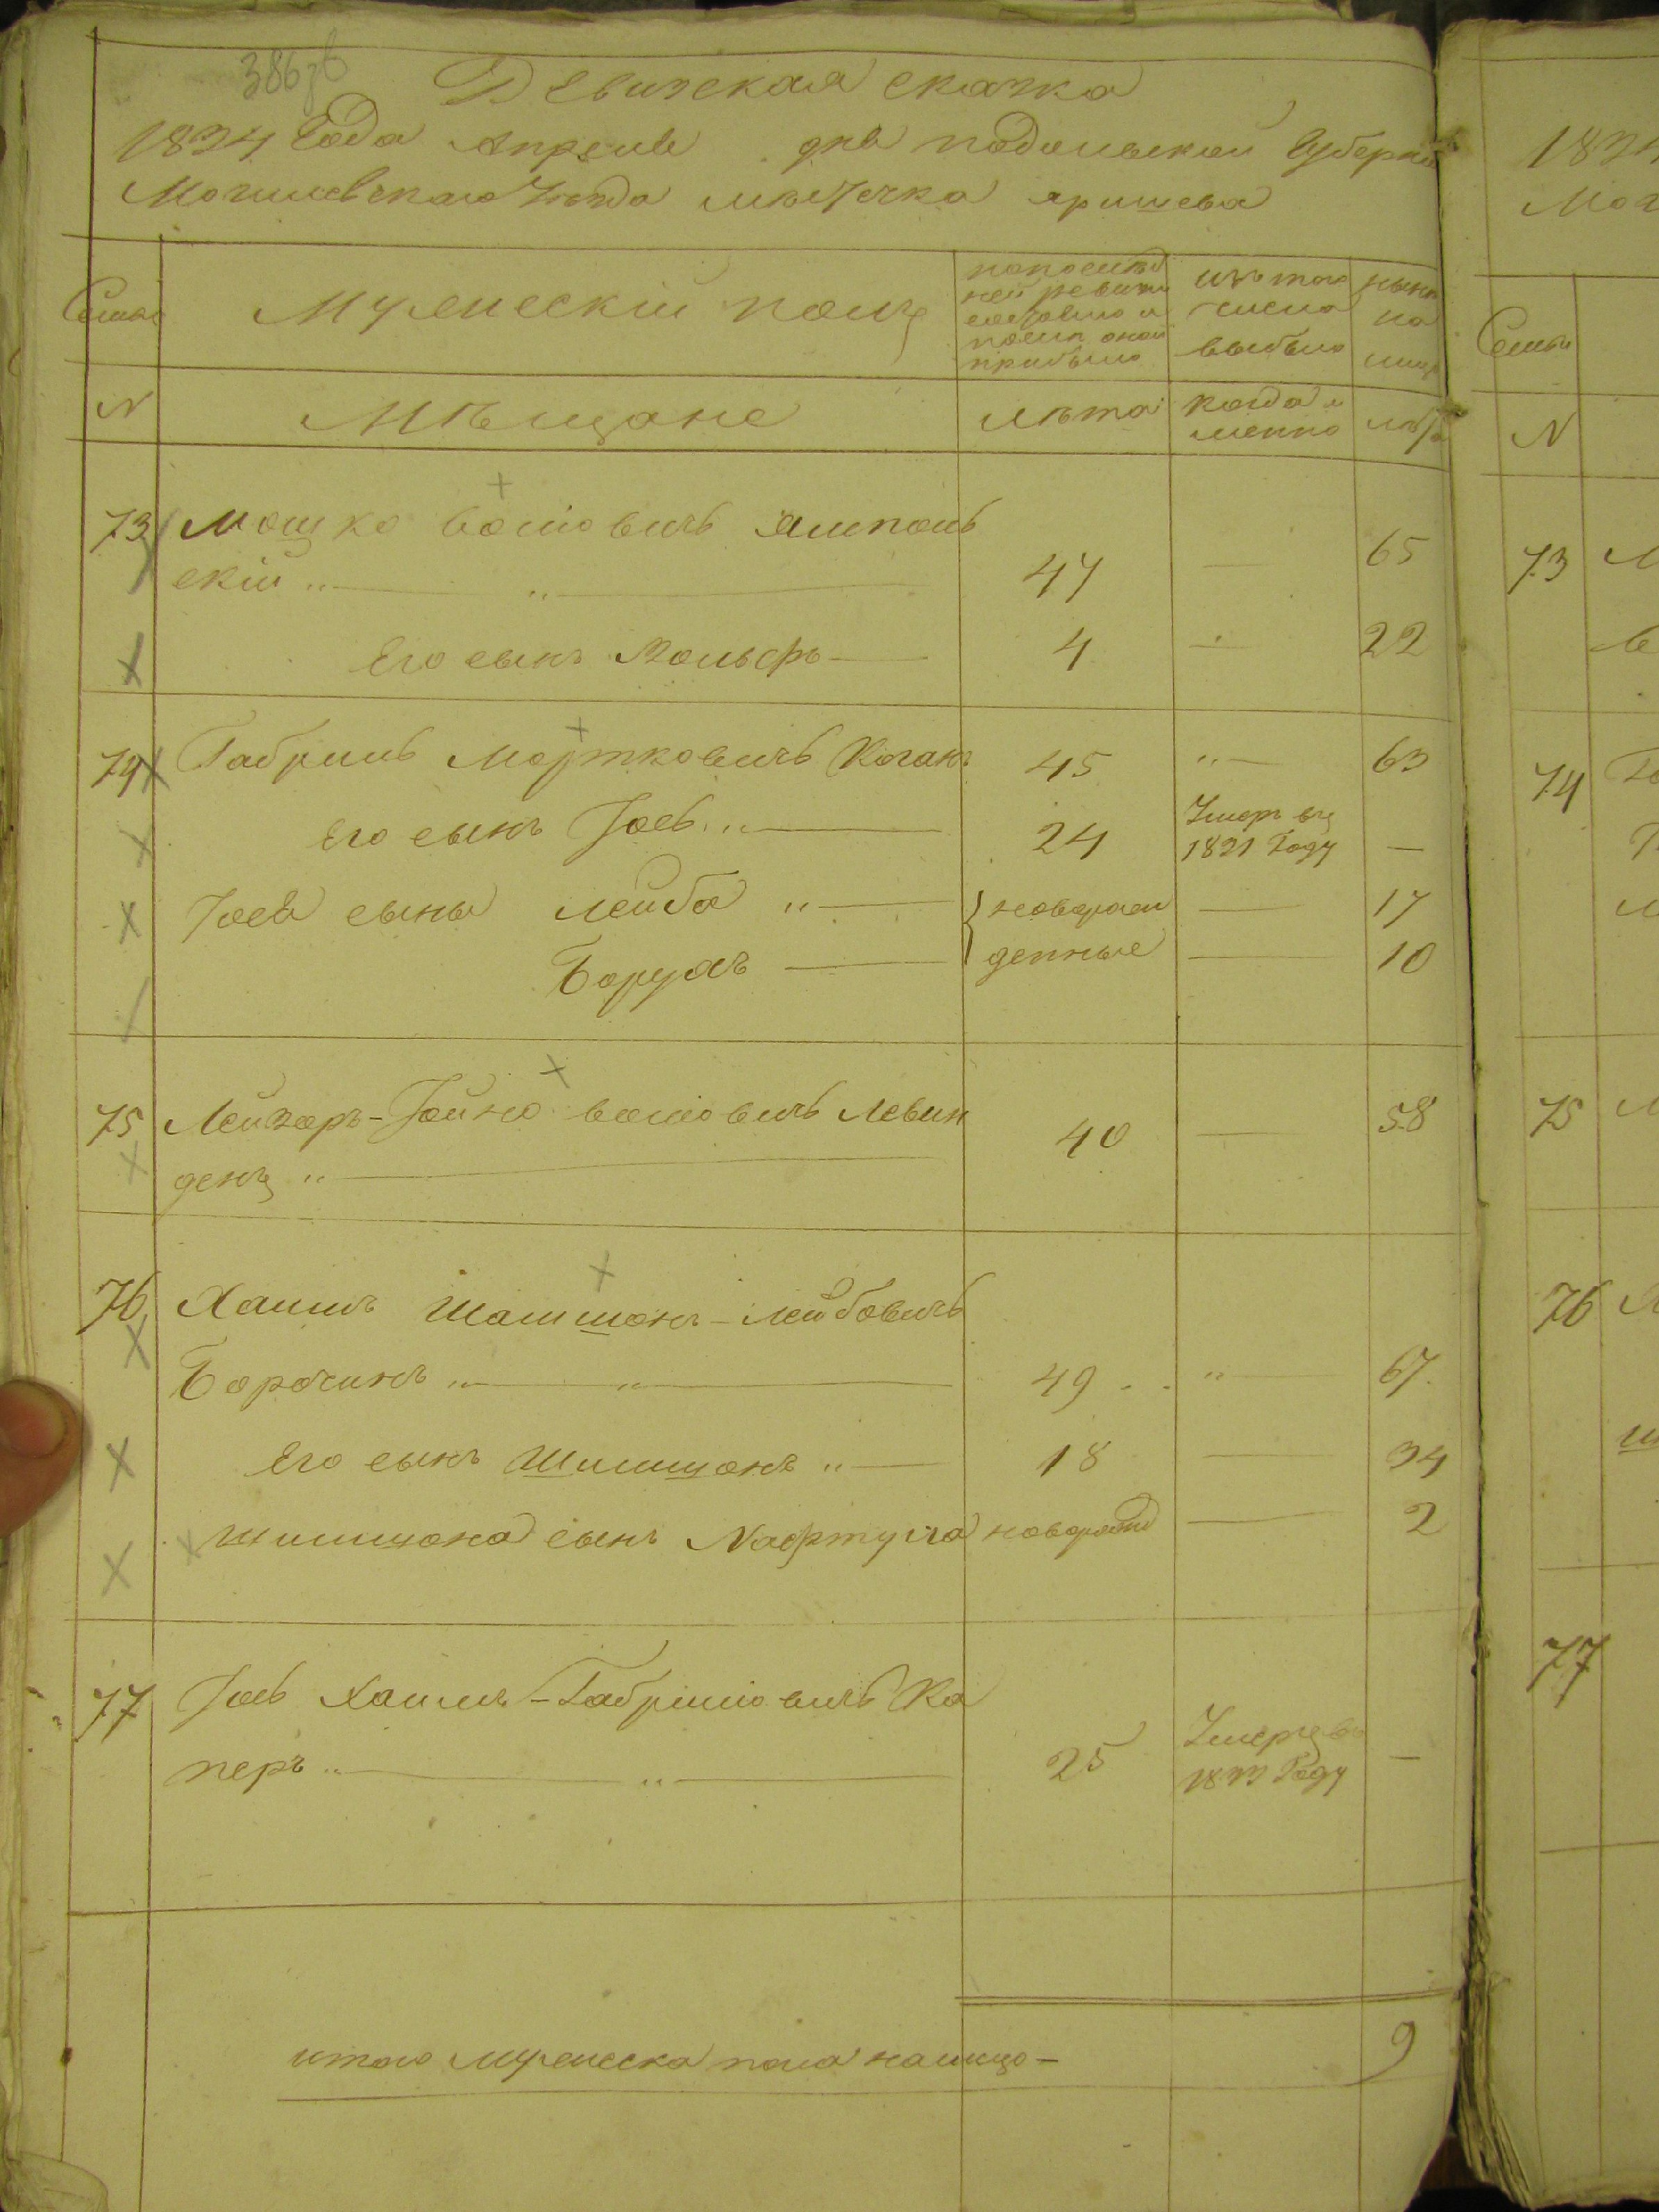 386 зв
Ревижская скажка
1834 Года Апреля дня Подольской Губерніи
Могилевскаго Уезда местечка яришева
Семьи
Мужескій полъ
по последней ревизіи состояло и после оной прибыло
изъ того числа выбыло
ныне на лицо
N
Мѣщане
лѣта
когда именно
лѣта
73 Мошко Волιовичъ Ямполь
скій 47 — 65
Его сынъ Вольфъ — 4 — 22
74 Габриль Мортковичъ Коганъ 45 — 63
Его сынъ Іосъ — 24 Умеръ въ 1821 Году —
Іося сыны Лейба — новорож — 17
Борухъ — денные — 10
75 Лейзаръ-Іойно Волιовичъ Левин
денъ — 40 — 58
76 Хаимъ Шамшонъ-Лейбовичъ
Борочинъ — 49 — 67
Его сынъ Шимшонъ — 18 — 34
Шимшона сынъ Nафтула новорожд — 2
77 Іось Хаимъ-Габриліовичъ Ка
перъ — 25 Умеръ въ 1833 Году —
итого мужеска пола налицо — 9
1834
Мог
Семьи
N
73
74
75
76
77